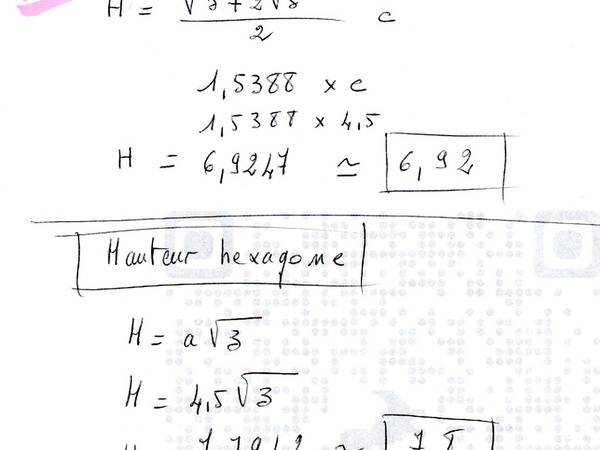 H = √5+2√5 / 2 c
1,5388 x c
1,5388 x 4,5
H = 6,9247 ≃ 6,92
Hauteur hexagone
H = a√3
H = 4,5√3